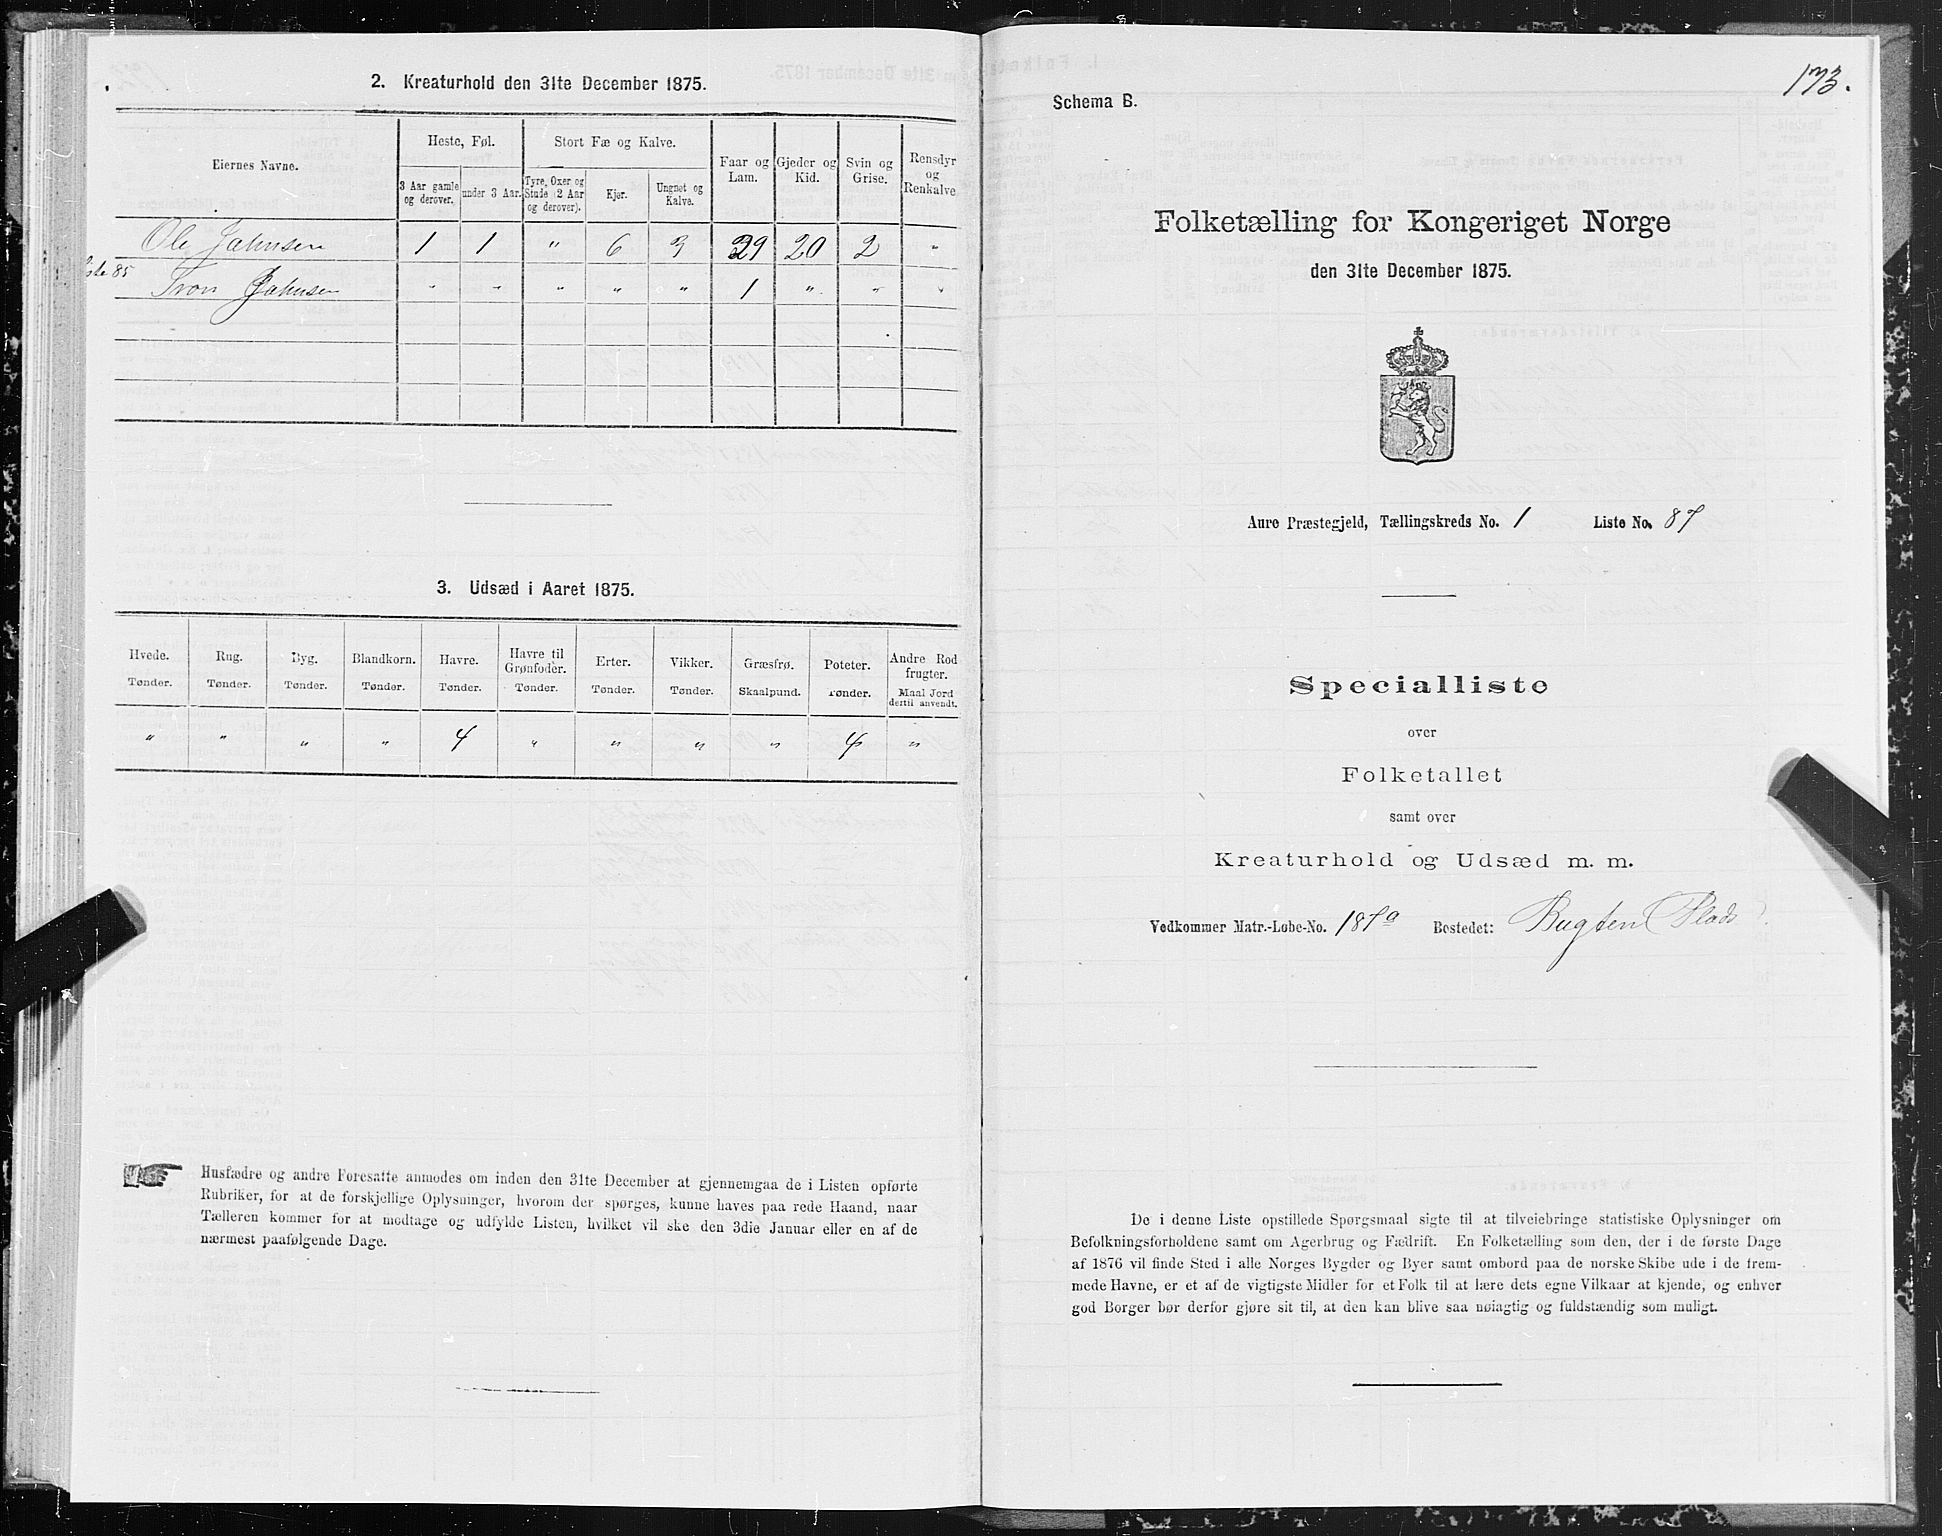 2. Kreaturhold den 31te December 1875.
Eiernes Navne.
Heste, Føl.
Stort Fæ og Kalve.
Faar og Lam.
Gjeder og Kid.
Svin og Grise.
Rensdyr og Renkalve
3 Aar gamle og derover.
under 3 Aar.
Tyre, Oxer og Stude (2 Aar og derover).
Kjør.
Ungnøt og Kalve.
Ole Jahnsen 1 1 " 6 3 29 20 2 "
85 Jahnsen " " " " " 1 " " "
3. Udsæd i Aaret 1875.
Hvede. Rug. Byg. Blandkorn. Havre. Havre til Grønfoder. Erter. Vikker. Græsfrø. Poteter. Andre Rod frugter.
Tønder. Tønder. Tønder. Tønder. Tønder. Tønder. Tønder. Tønder. Skaalpund. Tønder. Maal Jord dertil anvendt.
" " " " 4 " " " " 4 "
Husfædre og andre Foresatte anmodes om inden den 31te December at gjennemgaa de i Listen opførte
Rubriker, for at de forskjellige Oplysninger, hvorom der spørges, kunne haves paa rede Haand, naar
Tælleren kommer for at modtage og udfylde Listen, hvilket vil ske den 3die Januar eller en af de
nærmest paafølgende Dage.
173.
Schema B.
Folketælling for Kongeriget Norge
den 31te December 1875.
Aure Præstegjeld, Tællingskreds No. 1 Liste No. 87
Specialliste
over
Folketallet
samt over
Kreaturhold og Udsæd m. m.
Vedkommer Matr.-Løbe-No. 187a Bostedet: Bugten (Plads)
De i denne Liste opstillede Spørgsmaal sigte til at tilveiebringe statistiske Oplysninger om
Befolkningsforholdene samt om Agerbrug og Fædrift. En Folketælling som den, der i de første Dage
af 1876 vil finde Sted i alle Norges Bygder og Byer samt ombord paa de norske Skibe ude i de frem-
mede Havne, er et af de vigtigste Midler for et Folk til at lære dets egne Vilkaar at kjende, og enhver
god Borger bør derfor gjøre sit til, at den kan blive saa nøiagtig og fuldstændig som muligt.